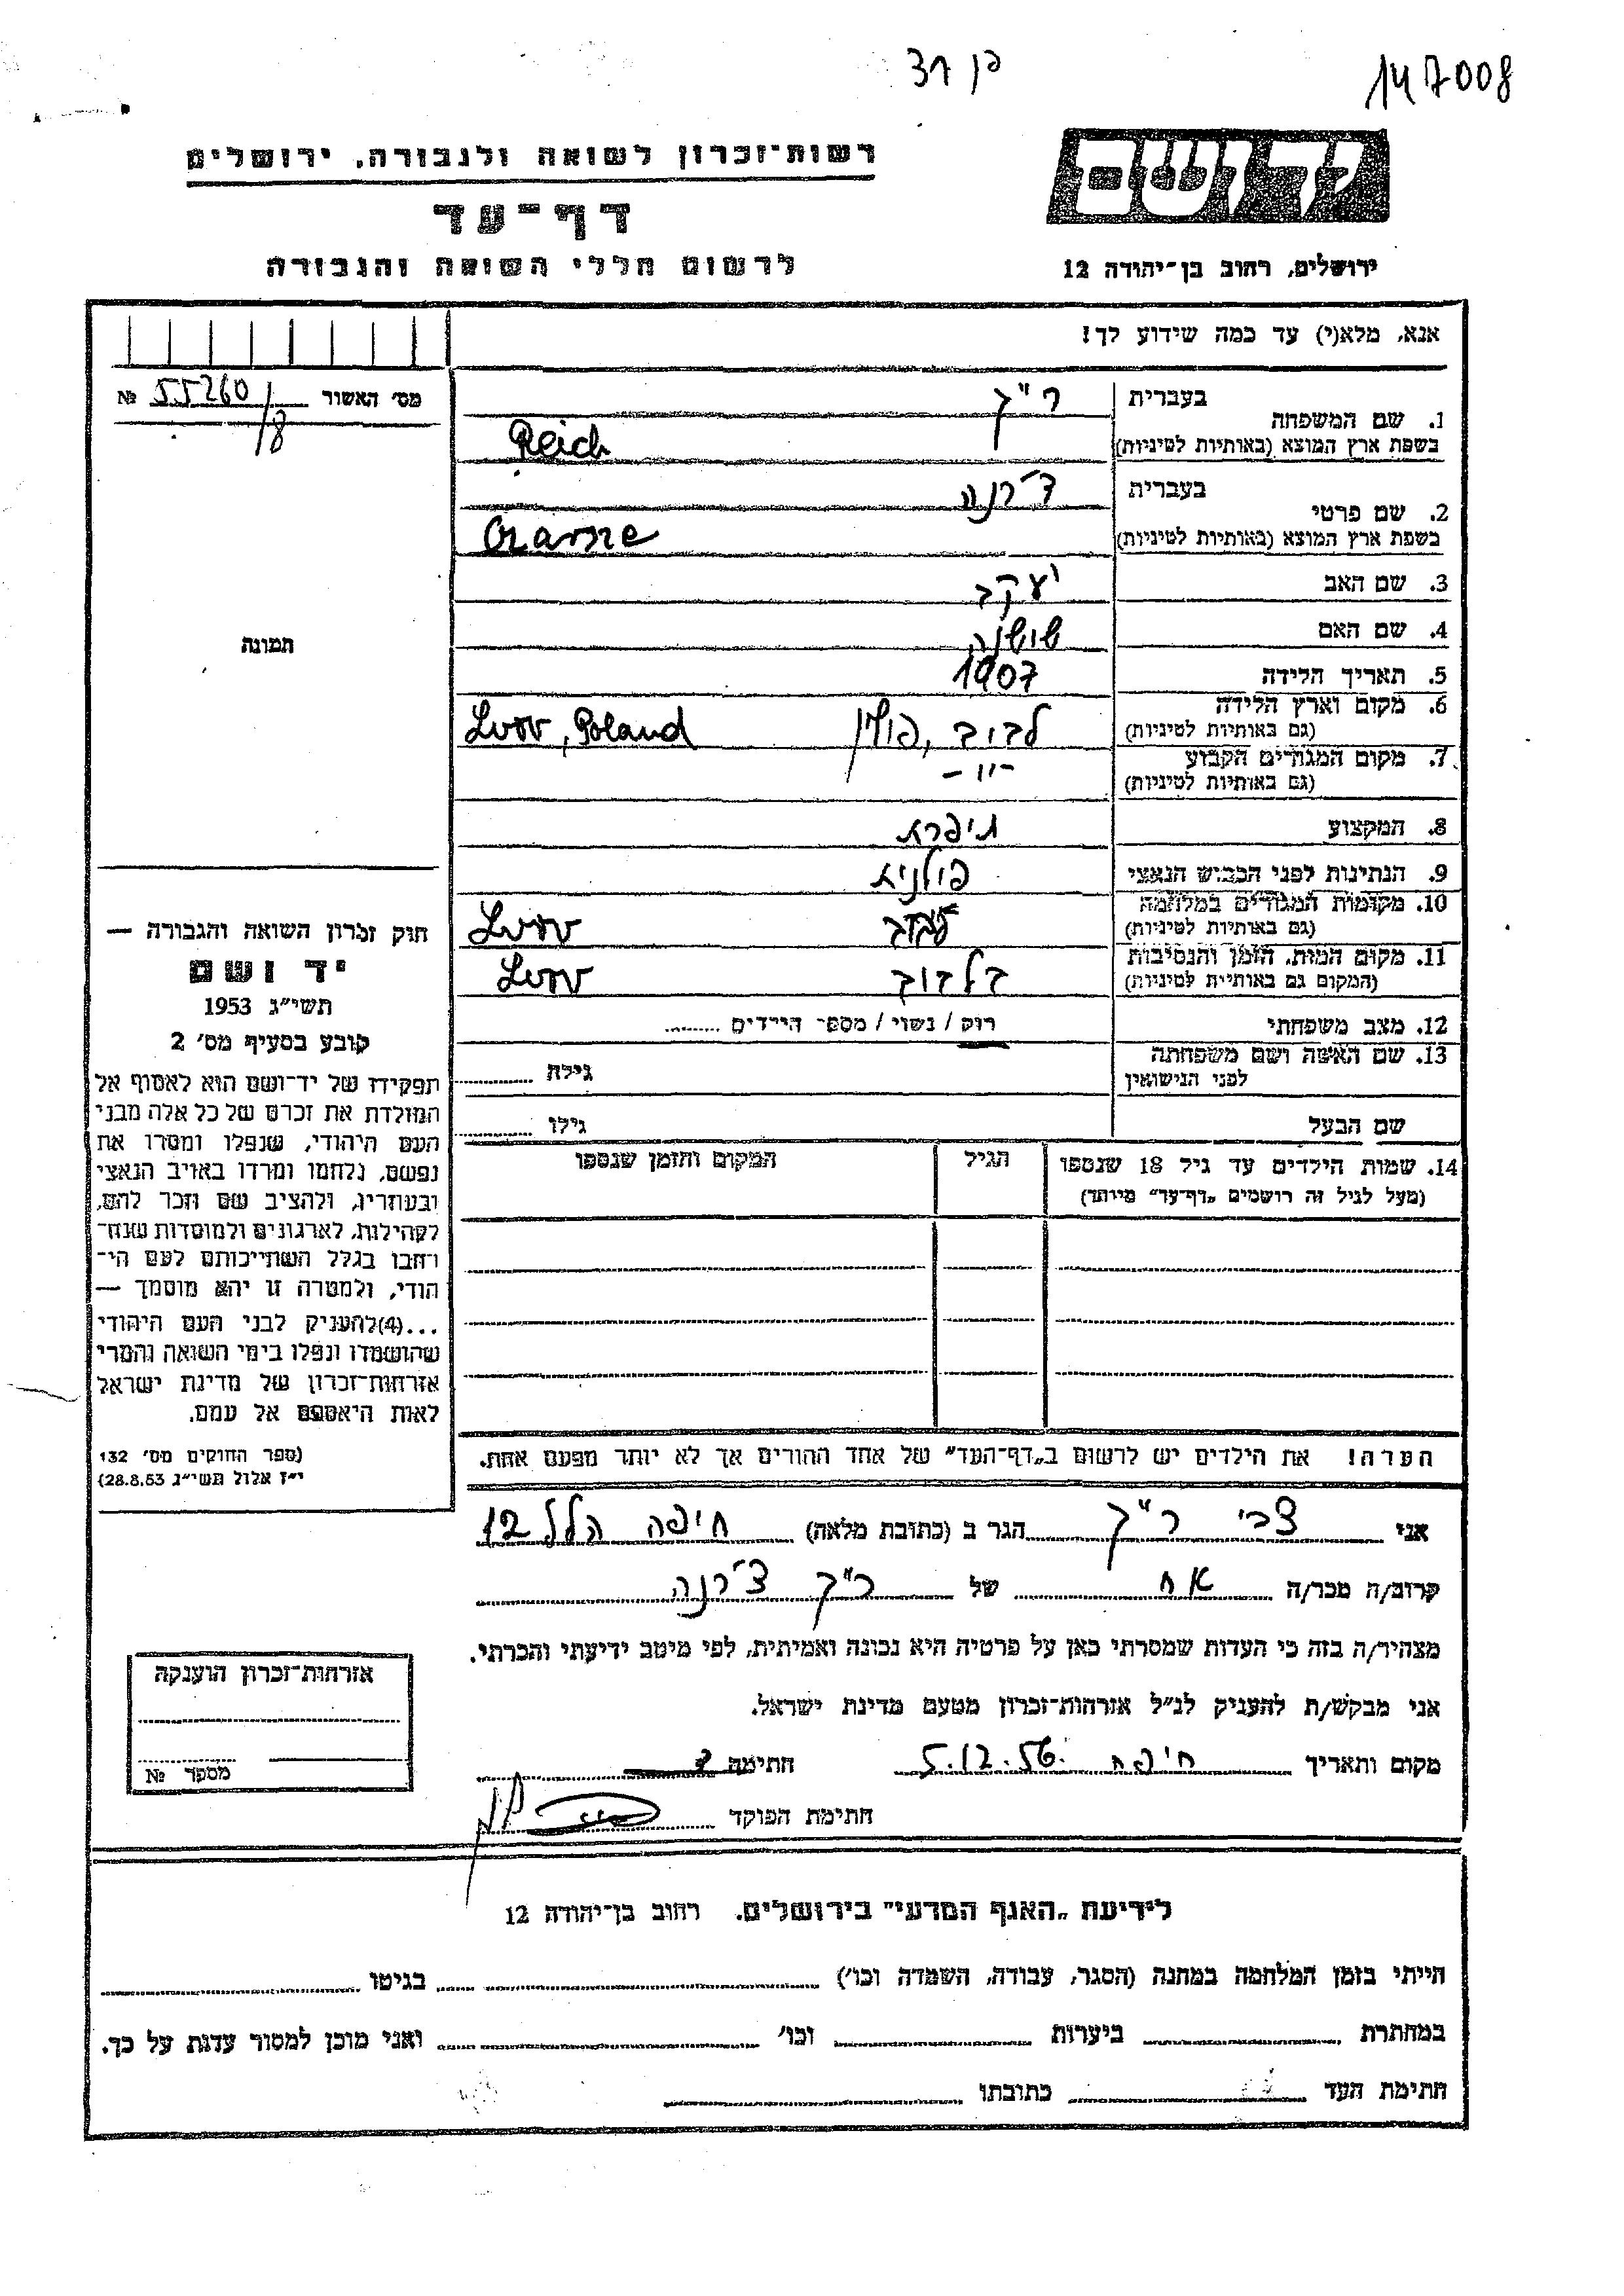 147008
ידושם
ירושלים, רחוב בן־יהודה 12
רשות־זכרון לשואה ולגבורה, ירושלים
דף־עד
לרשום חללי השואה והגבורה
אנא, מלא(י) עד כמה שידוע לך!
מס׳ האשור 55260/8 №
1. שם המשפחה
בעברית ר״ך
בשפת ארץ המוצא (באותיות לטיניות) Reich
2. שם פרטי
בעברית צ׳רנה
בשפת ארץ המוצא (באותיות לטיניות) Czarne
3. שם האב יעקב
4. שם האם שושנה
5. תאריך הלידה 1907
6. מקום וארץ הלידה לבוב, פולין Lvov, Poland
(גם באותיות לטיניות)
7. מקום המגורים הקבוע -״-
(גם באותיות לטיניות)
8. המקצוע תופרת
9. הנתינות לפני הכבוש הנאצי פולנית
10. מקומות המגורים במלחמה לבוב Lvov
(גם באותיות לטיניות)
11. מקום המות, הזמן והנסיבות בלבוב Lvov
(המקום גם באותיות לטיניות)
12. מצב משפחתי רוק / נשוי / מספר הילדים
13. שם האשה ושם משפחתה
לפני הנישואין גילה
שם הבעל גילו
14. שמות הילדים עד גיל 18 שנספו הגיל המקום והזמן שנספו
(מעל לגיל זה רושמים „דף־עד״ מיוחד)
הערה! את הילדים יש לרשום ב„דף־העד״ של אחד ההורים אך לא יותר מפעם אחת.
תמונה
חוק זכרון השואה והגבורה —
יד ושם
תשי״ג 1953
קובע בסעיף מס׳ 2
תפקידו של יד־ושם הוא לאסוף אל
המולדת את זכרם של כל אלה מבני
העם היהודי, שנפלו ומסרו את
נפשם, נלחמו ומרדו באויב הנאצי
ובעוזריו, ולהציב שם וזכר להם,
לקהילות, לארגונים ולמוסדות שנח־
רחבו בגלל השתייכותם לעם הי־
הודי, ולמטרה זו יהא מוסמך —
...(4)להעניק לבני העם היהודי
שהושמדו ונפלו בימי השואה והמרי
אזרחות־זכרון של מדינת ישראל
לאות היאספם אל עמם.
(ספר החוקים מס׳ 132
י״ז אלול תשי״ג 28.8.53)
אני צבי ר״ך הגר ב (כתובת מלאה) חיפה הלל 12
קרוב/ה מכר/ה אח של ר״ך צ׳רנה
מצהיר/ה בזה כי העדות שמסרתי כאן על פרטיה היא נכונה ואמיתית, לפי מיטב ידיעתי והכרתי.
אני מבקש/ת להעניק לנ״ל אזרחות־זכרון מטעם מדינת ישראל.
מקום ותאריך חיפה 5.12.56 חתימה
חתימת הפוקד
אזרחות־זכרון הוענקה
מספר №
לידיעת „האגף המדעי״ בירושלים. רחוב בן־יהודה 12
הייתי בזמן המלחמה במחנה (הסגר, עבודה, השמדה וכו׳) בגיטו
במחתרת ביערות וכו׳ ואני מוכן למסור עדות על כך.
חתימת העד כתובתו